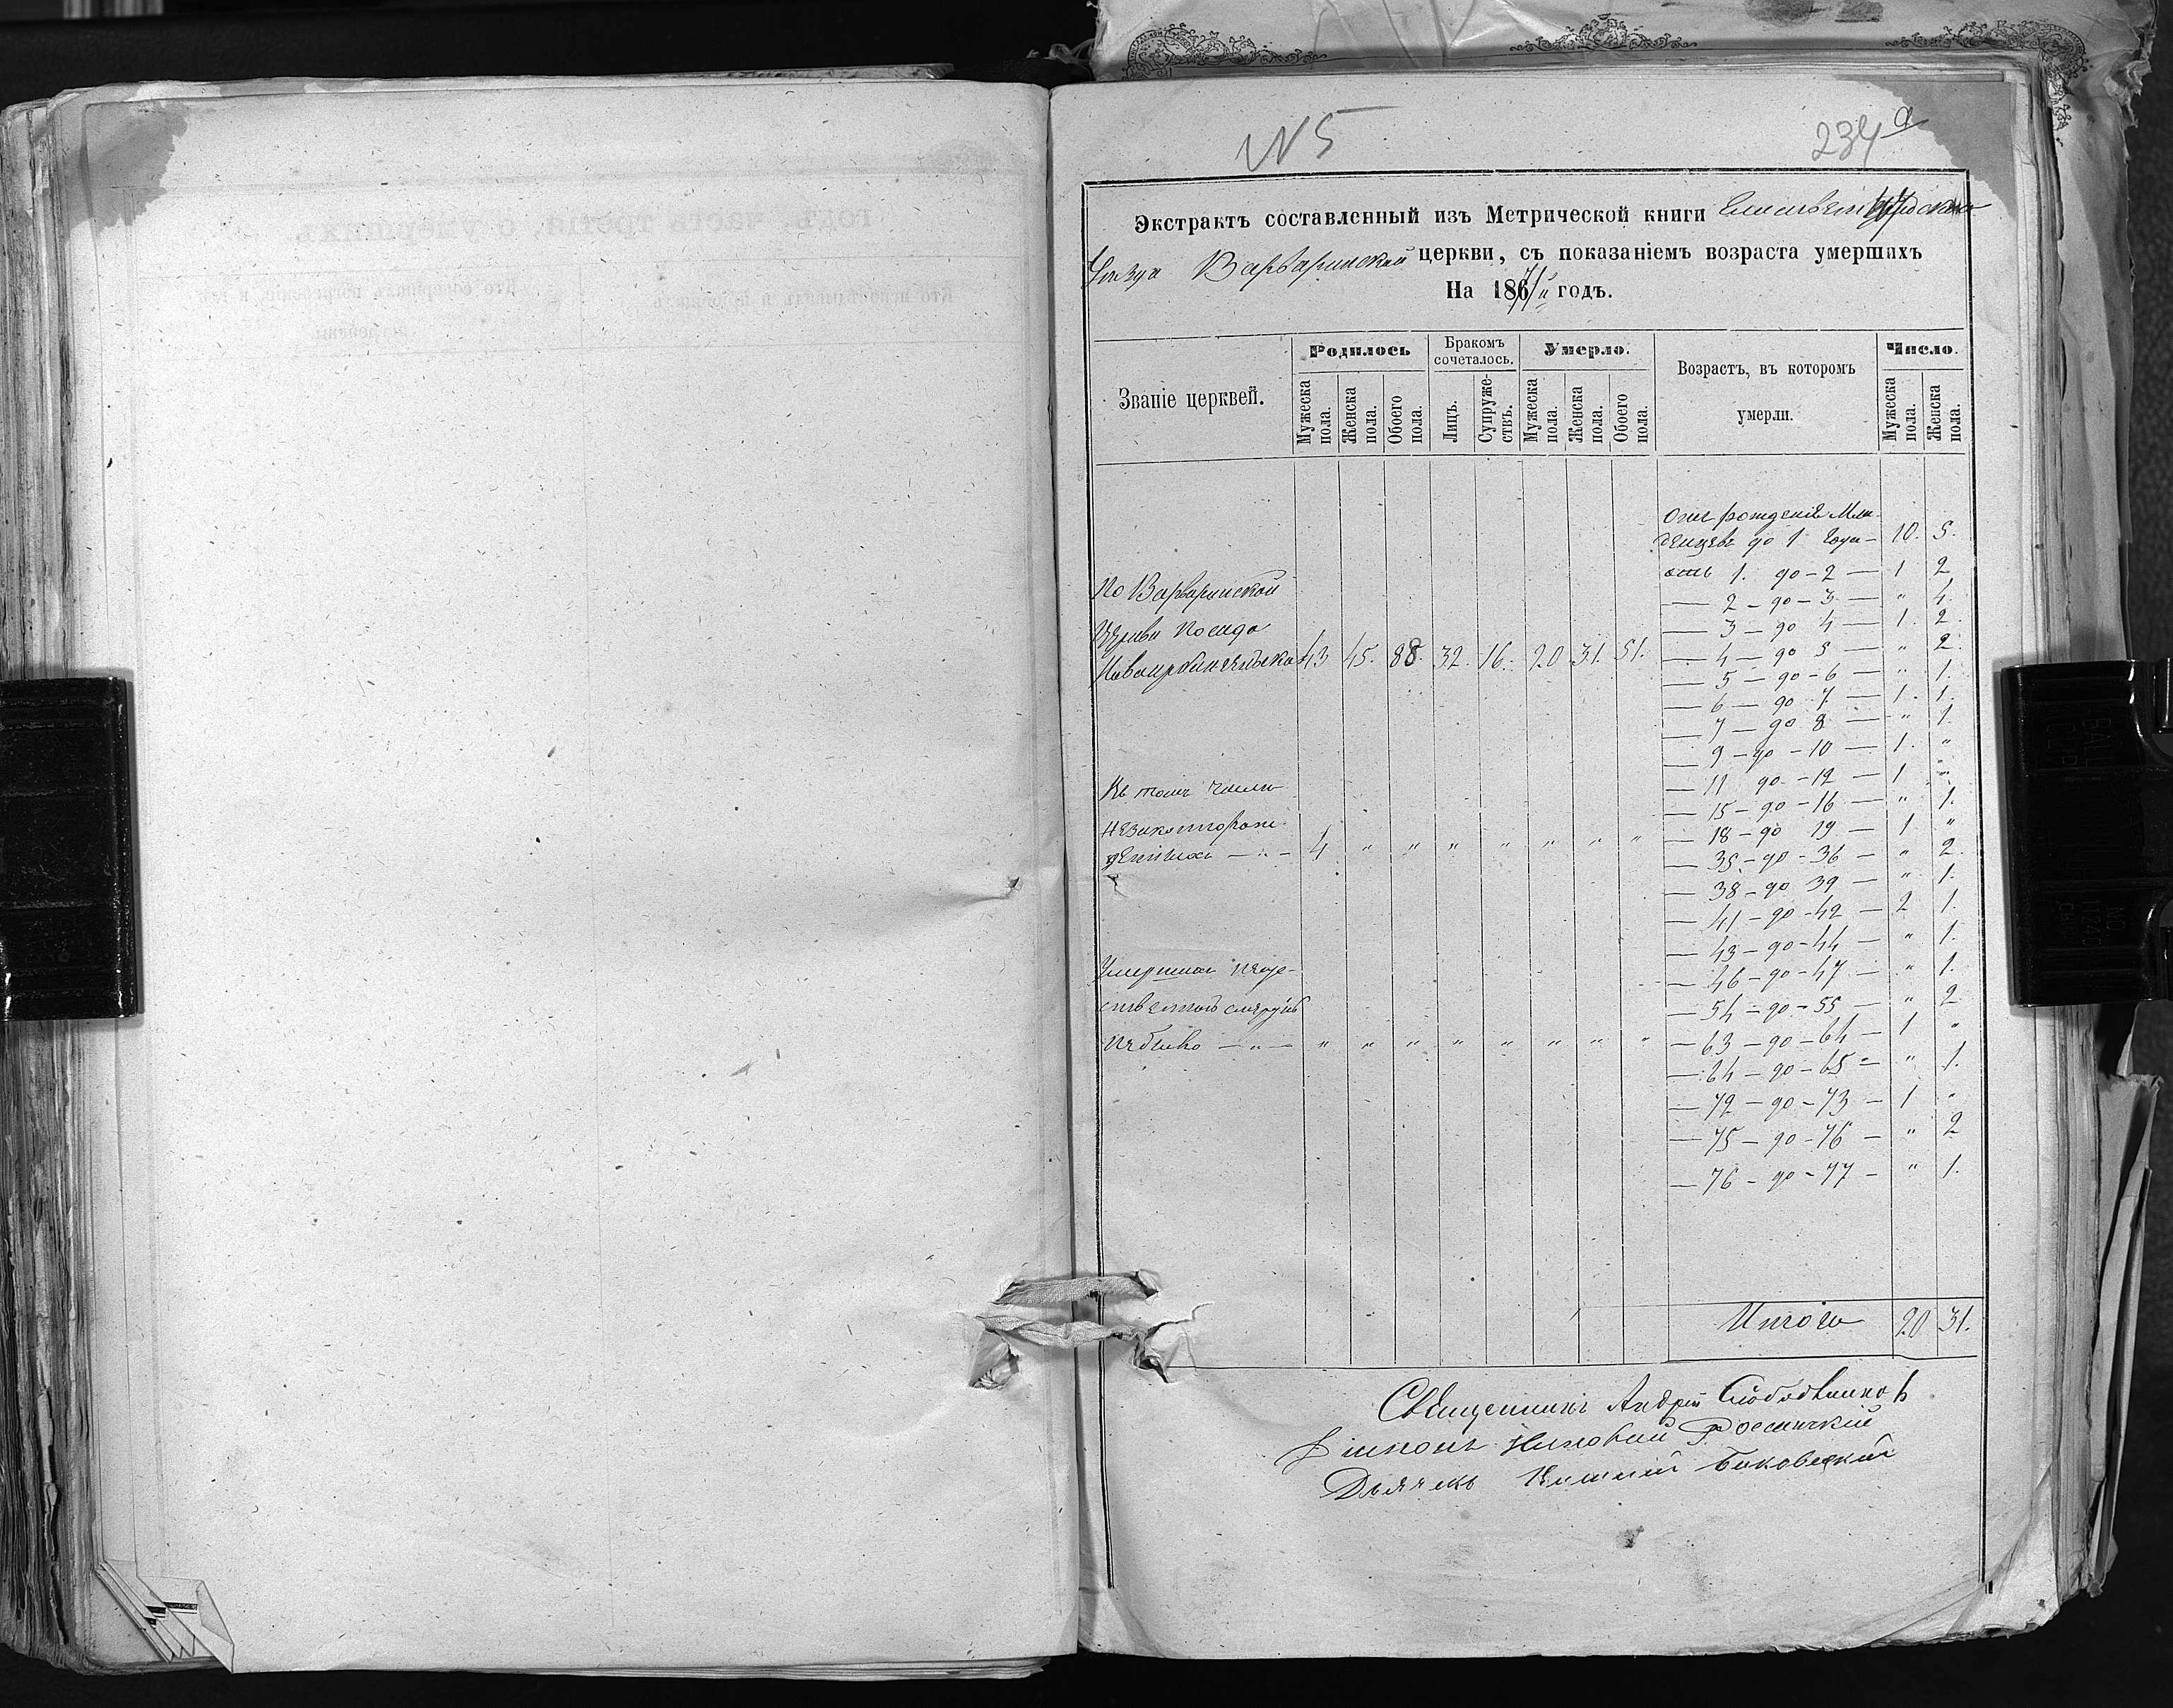 № 5
234 а
Экстрактъ составленный изъ Метрической книги Елисаветградскаго
Уѣзда Варваринской церкви, съ показаніемъ возраста умершихъ
На 1871й годъ.
Званіе церквей.
Родилось
Мужеска пола.
Женска пола.
Обоего пола.
Бракомъ сочеталось.
Лицъ.
Супружествъ.
Умерло.
Мужеска пола.
Женска пола.
Обоего пола.
Возрастъ, въ которомъ
умерли.
Число.
Мужеска пола.
Женска пола.
По Варваринской
Церкви посада
43 45. 88. 32. 16. 20 31. 51.
Въ томъ числѣ
незаконорож
денныхъ — „ — 4 „ „ „ „ „ „ „
Умершихъ неесте-
ственною смертію
небыло — „ — „ „ „ „ „ „ „ „
Отъ рожденія Мла
денцевъ до 1 года — 10. 5.
отъ 1. до - 2 — 1 2
— 2 - до - 3 — „ 4.
— 3 - до 4 — 1. 2.
— 4 - до 5 — „ 2.
— 5 - до - 6 — „ 1.
— 6 - до 7 — 1. 1.
— 7 - до 8 — „ 1.
— 9 - до - 10 — 1. „
— 11 до - 12 — 1 „
— 15 - до - 16 — „ 1.
— 18 - до 19 — 1 „
— 35 - до - 36 — „ 2.
— 38 - до 39 — „ 1.
— 41 - до - 42 — 2 1.
— 43 - до - 44 — „ 1.
— 46 - до - 47 — „ 1.
— 54 - до - 55 — „ 2
— 63 - до - 64 — 1 „
— 64 - до - 65 — „ 1.
— 72 - до - 73 — 1 „
— 75 - до - 76 — „ 2
— 76 - до - 77 — „ 1.
Итого 20 31.
Священникъ Андрей
Діаконъ
Дьячекъ